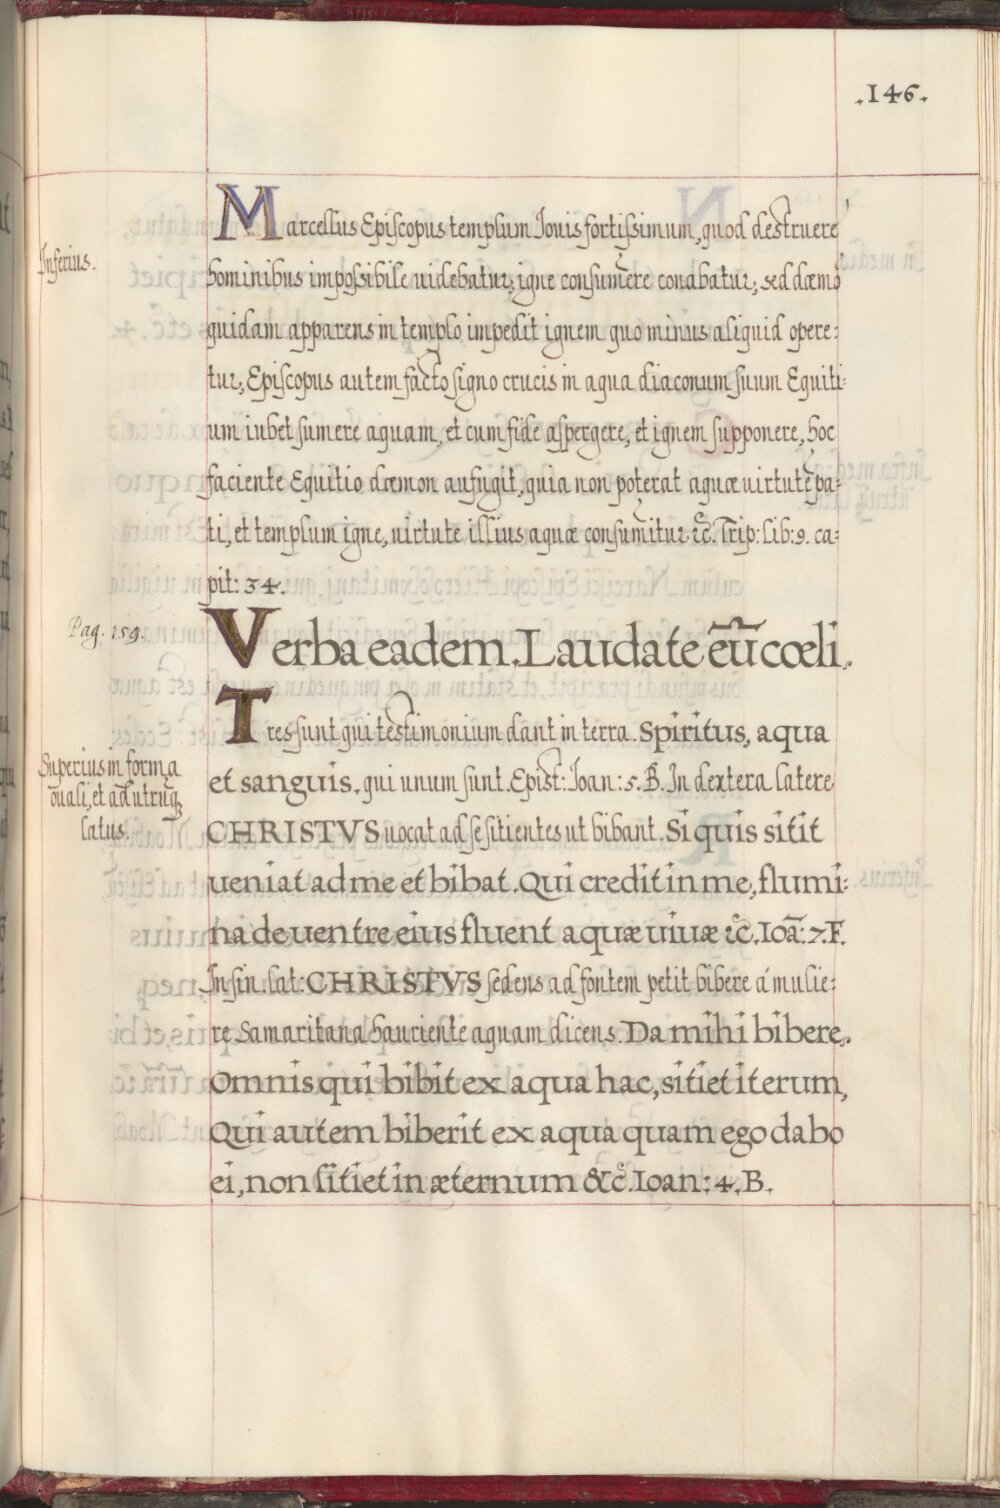 .146.
Inferius.
Marcellus Episcopus templum Iouis fortissimum, quod destruere
hominibus impossibile uidebatur, igne consumere conabatur; sed dæmō
quidam apparens in templo impedit ignem quo minus aliquid opere:
tur, Episcopus autem facto signo crucis in aqua diaconum suum Equiti:
um iubet sumere aquam, et cum fide aspergere, et ignem supponere, hoc
faciente Equitio dæmon aufugit, quia non poterat aquæ uirtutē pa-
ti, et templum igne, uirtute illius aquæ consumitur &c̊. Trip: lib: 9. ca-
pit: 34.
Pag. 159.
Verba eadem. Laudate eū cœli.
Superius in forma
ouali, et ad utrūq
latus.
Tres sunt qui testimonium dant in terra. Spiritus, aqua
et sanguis. qui unum sunt. Epist: Ioan: 5. B. In dextera latere
CHRISTVS uocat ad se sitientes ut bibant. Si quis sitit
ueniat ad me et bibat. Qui credit in me, flumi:
na de uentre eius fluent aquæ uiuæ &c̊. Ioā: 7. F.
In sin. lat: CHRISTVS sedens ad fontem petit bibere á mulie:
re Samaritana hauriente aquam dicens. Da mihi bibere.
Omnis qui bibit ex aqua hac, sitiet iterum,
Qui autem biberit ex aqua quam ego dabo
ei, non sitiet in æternum &c̊. Ioan: 4. B.